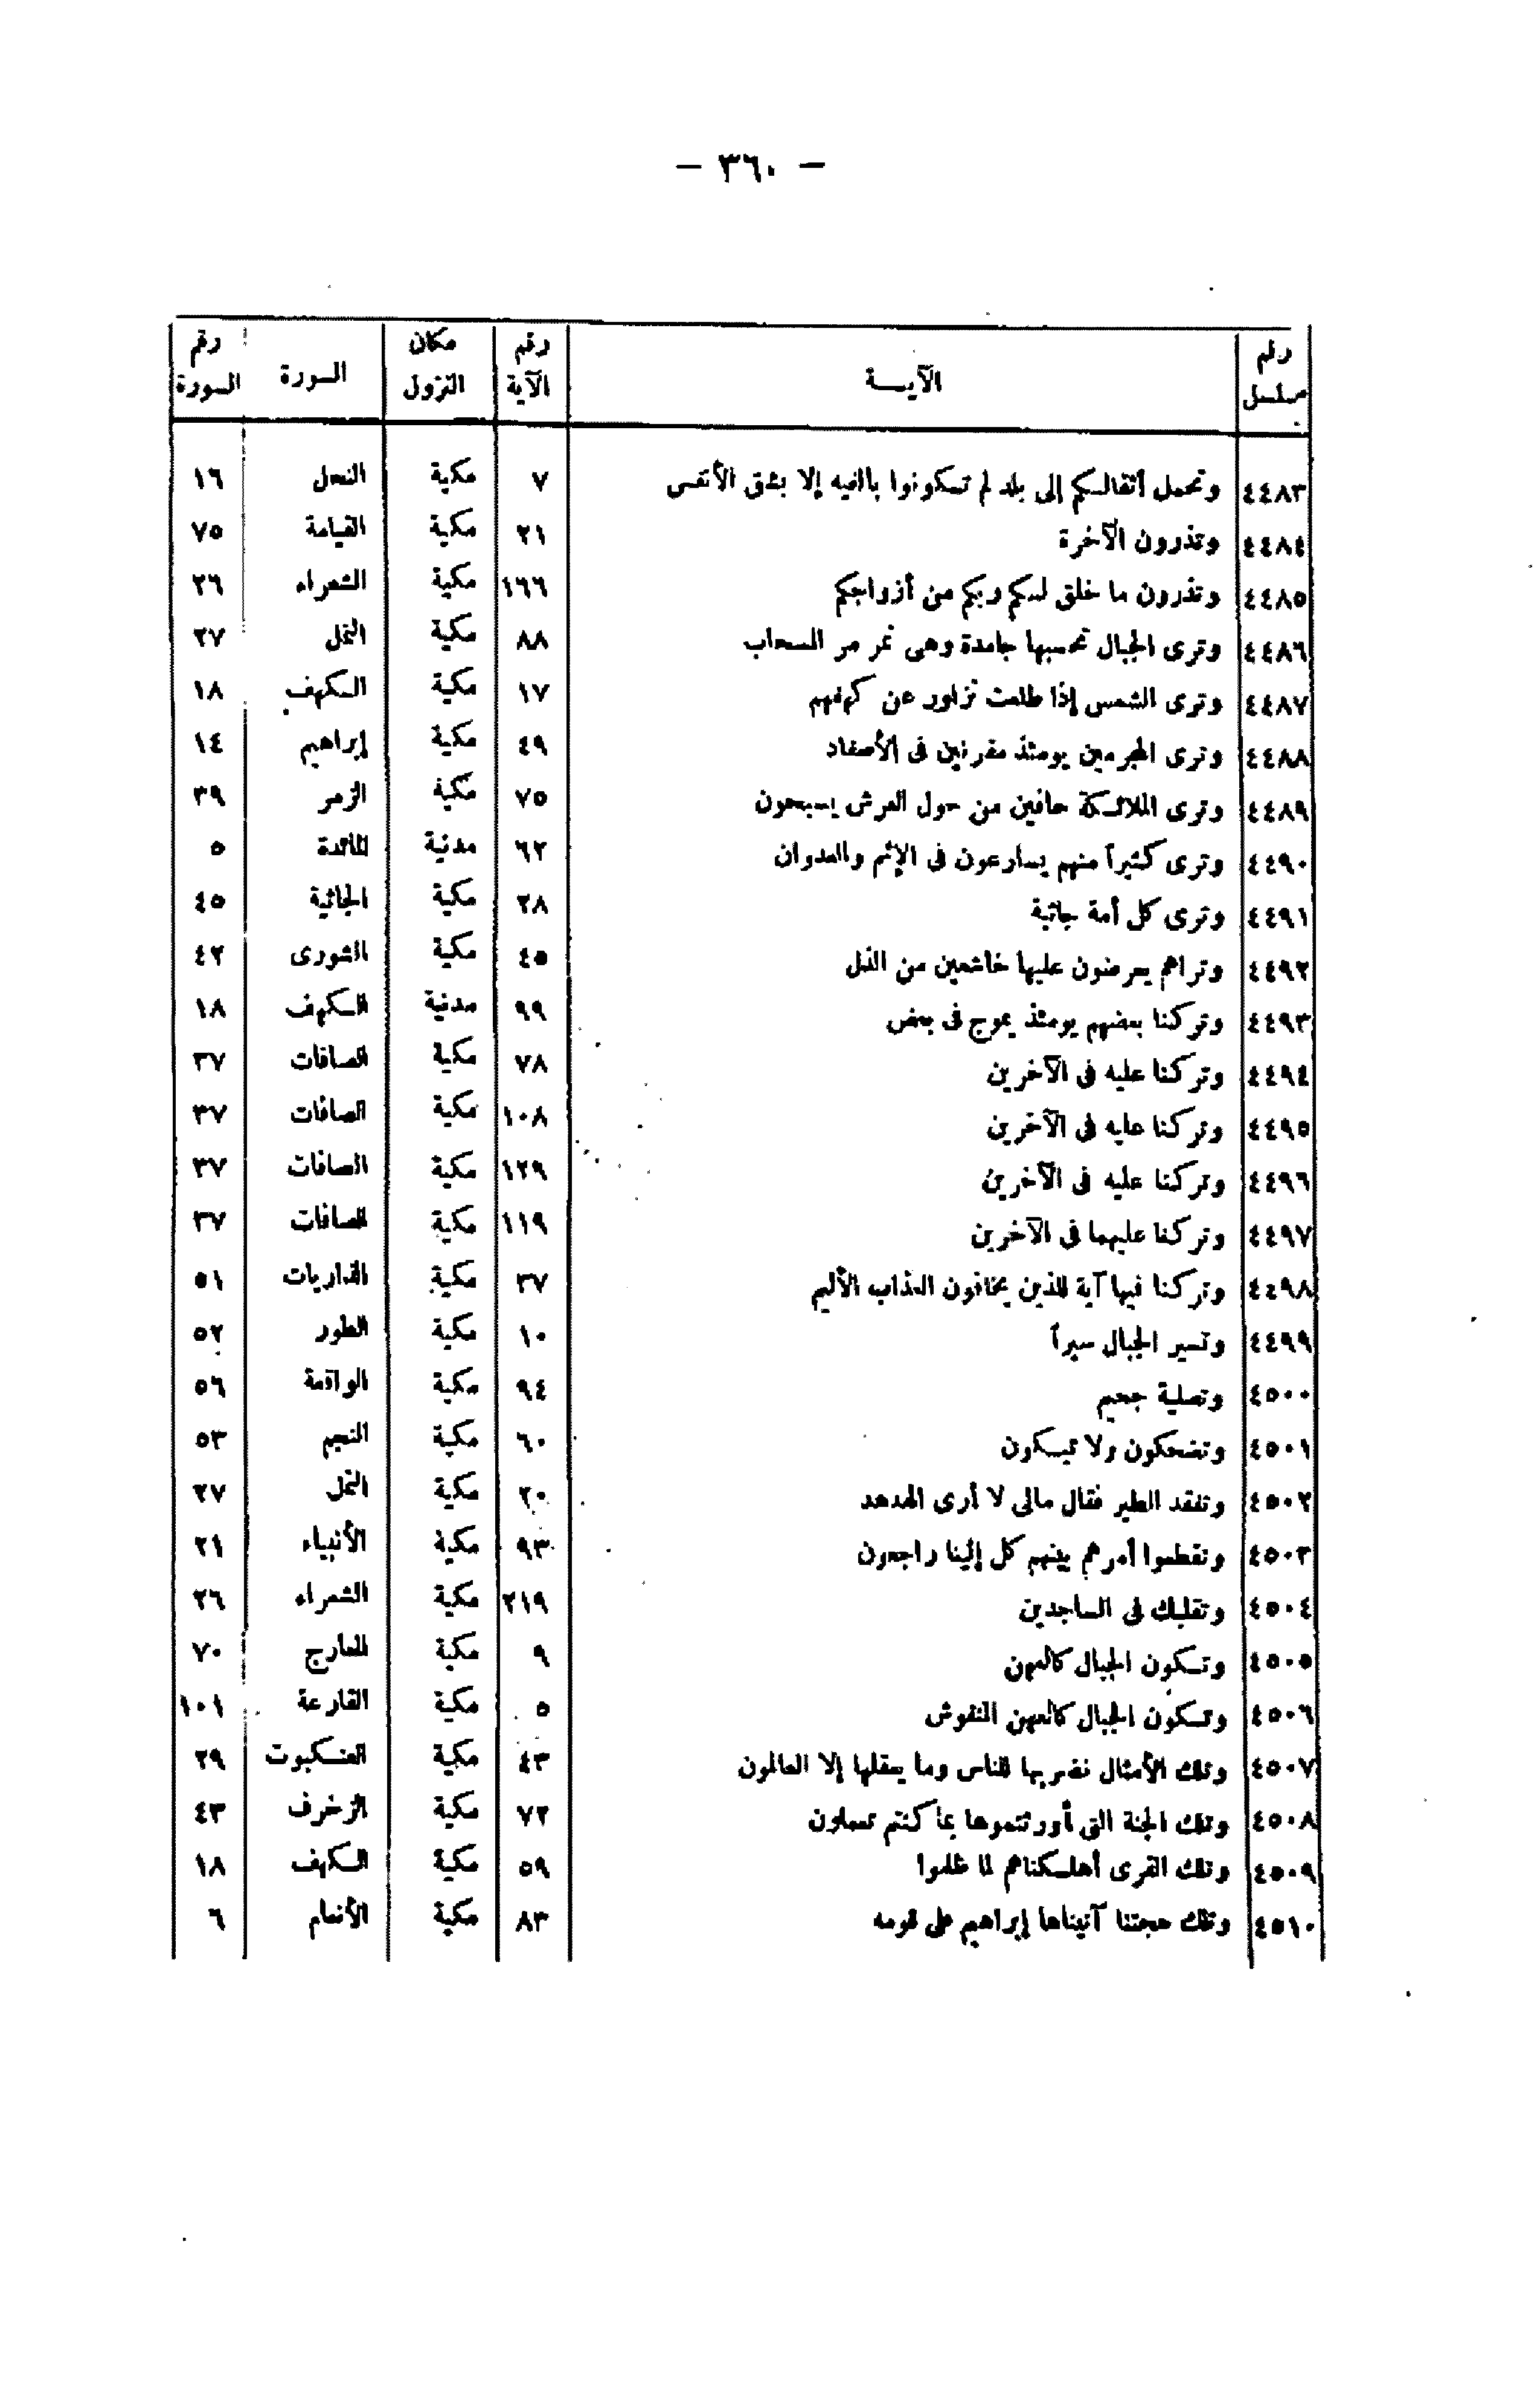 — ٣٦٠ —
رقم مسلسل | الآيـــة | رقم الآية | مكان النزول | السورة | رقم السورة
٤٤٨٣ | وتحمل أثقالكم إلى بلد لم تكونوا بالغيه إلا بشق الأنفس | ٧ | مكية | النحل | ١٦
٤٤٨٤ | وتذرون الآخرة | ٢١ | مكية | القيامة | ٧٥
٤٤٨٥ | وتذرون ما خلق لكم ربكم من أزواجكم | ١٦٦ | مكية | الشعراء | ٢٦
٤٤٨٦ | وترى الجبال تحسبها جامدة وهى تمر مر السحاب | ٨٨ | مكية | النمل | ٢٧
٤٤٨٧ | وترى الشمس إذا طلعت تزاور عن كهفهم | ١٧ | مكية | الكهف | ١٨
٤٤٨٨ | وترى المجرمين يومئذ مقرنين فى الأصفاد | ٤٩ | مكية | إبراهيم | ١٤
٤٤٨٩ | وترى الملائكة حافين من حول العرش يسبحون | ٧٥ | مكية | الزمر | ٣٩
٤٤٩٠ | وترى كثيراً منهم يسارعون فى الإثم والعدوان | ٦٢ | مدنية | المائدة | ٥
٤٤٩١ | وترى كل أمة جاثية | ٢٨ | مكية | الجاثية | ٤٥
٤٤٩٢ | وتراهم يعرضون عليها خاشعين من الذل | ٤٥ | مكية | الشورى | ٤٢
٤٤٩٣ | وتركنا بعضهم يومئذ يموج فى بعض | ٩٩ | مدنية | الكهف | ١٨
٤٤٩٤ | وتركنا عليه فى الآخرين | ٧٨ | مكية | الصافات | ٣٧
٤٤٩٥ | وتركنا عليه فى الآخرين | ١٠٨ | مكية | الصافات | ٣٧
٤٤٩٦ | وتركنا عليه فى الآخرين | ١٢٩ | مكية | الصافات | ٣٧
٤٤٩٧ | وتركنا عليهما فى الآخرين | ١١٩ | مكية | الصافات | ٣٧
٤٤٩٨ | وتركنا فيها آية للذين يخافون العذاب الأليم | ٣٧ | مكية | الذاريات | ٥١
٤٤٩٩ | وتسير الجبال سيراً | ١٠ | مكية | الطور | ٥٢
٤٥٠٠ | وتصلية جحيم | ٩٤ | مكية | الواقعة | ٥٦
٤٥٠١ | وتضحكون ولا تبكون | ٦٠ | مكية | النجم | ٥٣
٤٥٠٢ | وتفقد الطير فقال مالى لا أرى الهدهد | ٢٠ | مكية | النمل | ٢٧
٤٥٠٣ | وتقطعوا أمرهم بينهم كل إلينا راجعون | ٩٣ | مكية | الأنبياء | ٢١
٤٥٠٤ | وتقلبك فى الساجدين | ٢١٩ | مكية | الشعراء | ٢٦
٤٥٠٥ | وتكون الجبال كالعهن | ٩ | مكية | المعارج | ٧٠
٤٥٠٦ | وتكون الجبال كالعهن المنفوش | ٥ | مكية | القارعة | ١٠١
٤٥٠٧ | وتلك الأمثال نضربها للناس وما يعقلها إلا العالمون | ٤٣ | مكية | العنكبوت | ٢٩
٤٥٠٨ | وتلك الجنة التى أورثتموها بما كنتم تعملون | ٧٢ | مكية | الزخرف | ٤٣
٤٥٠٩ | وتلك القرى أهلكناهم لما ظلموا | ٥٩ | مكية | الكهف | ١٨
٤٥١٠ | وتلك حجتنا آتيناها إبراهيم على قومه | ٨٣ | مكية | الأنعام | ٦